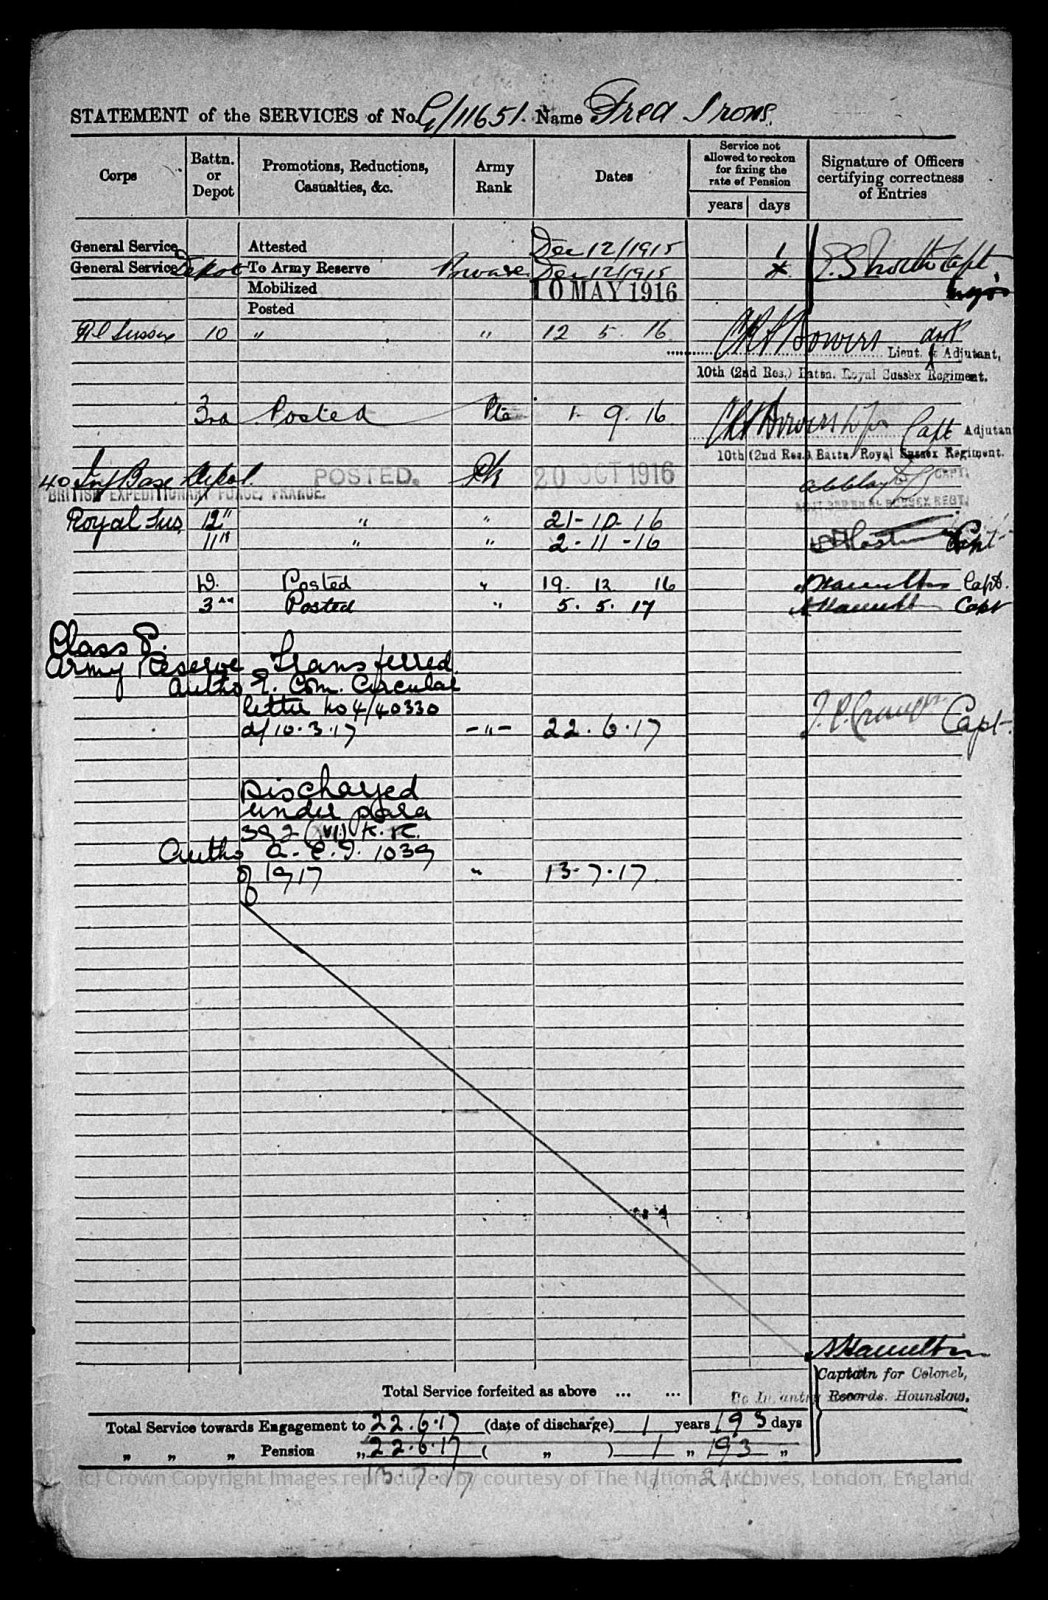 STATEMENT of the SERVICES of No. G/11651. Name Fred Irons.
Corps Battn. or Depot Promotions, Reductions, Casualties, &c. Army Rank Dates Service not allowed to reckon for fixing the rate of Pension years days Signature of Officers certifying correctness of Entries
General Service Attested Dec 12/1915 1
General Service Depot To Army Reserve Private Dec 12/1915 Capt
Mobilized 10 MAY 1916
Posted
Rl Sussex 10 " " 12 5. 16 Bowers
Lieut. & Adjutant,
10th (2nd Res.) Battn. Royal Sussex Regiment.
3rd Posted Pte 1. 9. 16 Bowers Capt Adjutant
10th (2nd Res.) Battn. Royal Sussex Regiment.
40 Inf Base Depot. POSTED. Pte 20 OCT 1916 CAPT.
BRITISH EXPEDITIONARY FORCE, FRANCE.
Royal Sus 12" " " 21-10-16
11th " " 2-11-16 Capt
D. Posted " 19. 12 16 A Hamilton Capt.
3rd Posted " 5. 5. 17 A Hamilton Capt
Class P.
Army Reserve Transferred
Autho E. Com. Circular
letter No 4/40330
d/10.3.17 -"- 22.6.17 Capt.
Discharged
under para
392 (XVI) K.R.
Autho A.C.I. 1039
of 1917 " 13.7.17.
A Hamilton
Captain for Colonel,
Total Service forfeited as above ... ...
Records. Hounslow.
Total Service towards Engagement to 22.6.17 (date of discharge) 1 years 193 days
" " " Pension " 22.6.17 ( " ) 1 " 193 "
13.7.17 1
(c) Crown Copyright Images reproduced by courtesy of The National Archives, London, England.